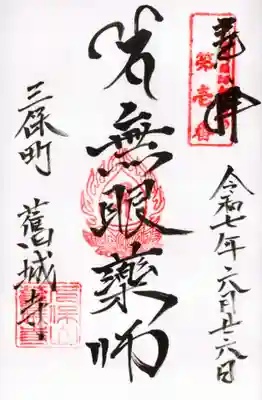 奉拝
第壱番
令和七年六月廿六日
無眼薬師
三保町
舊城寺